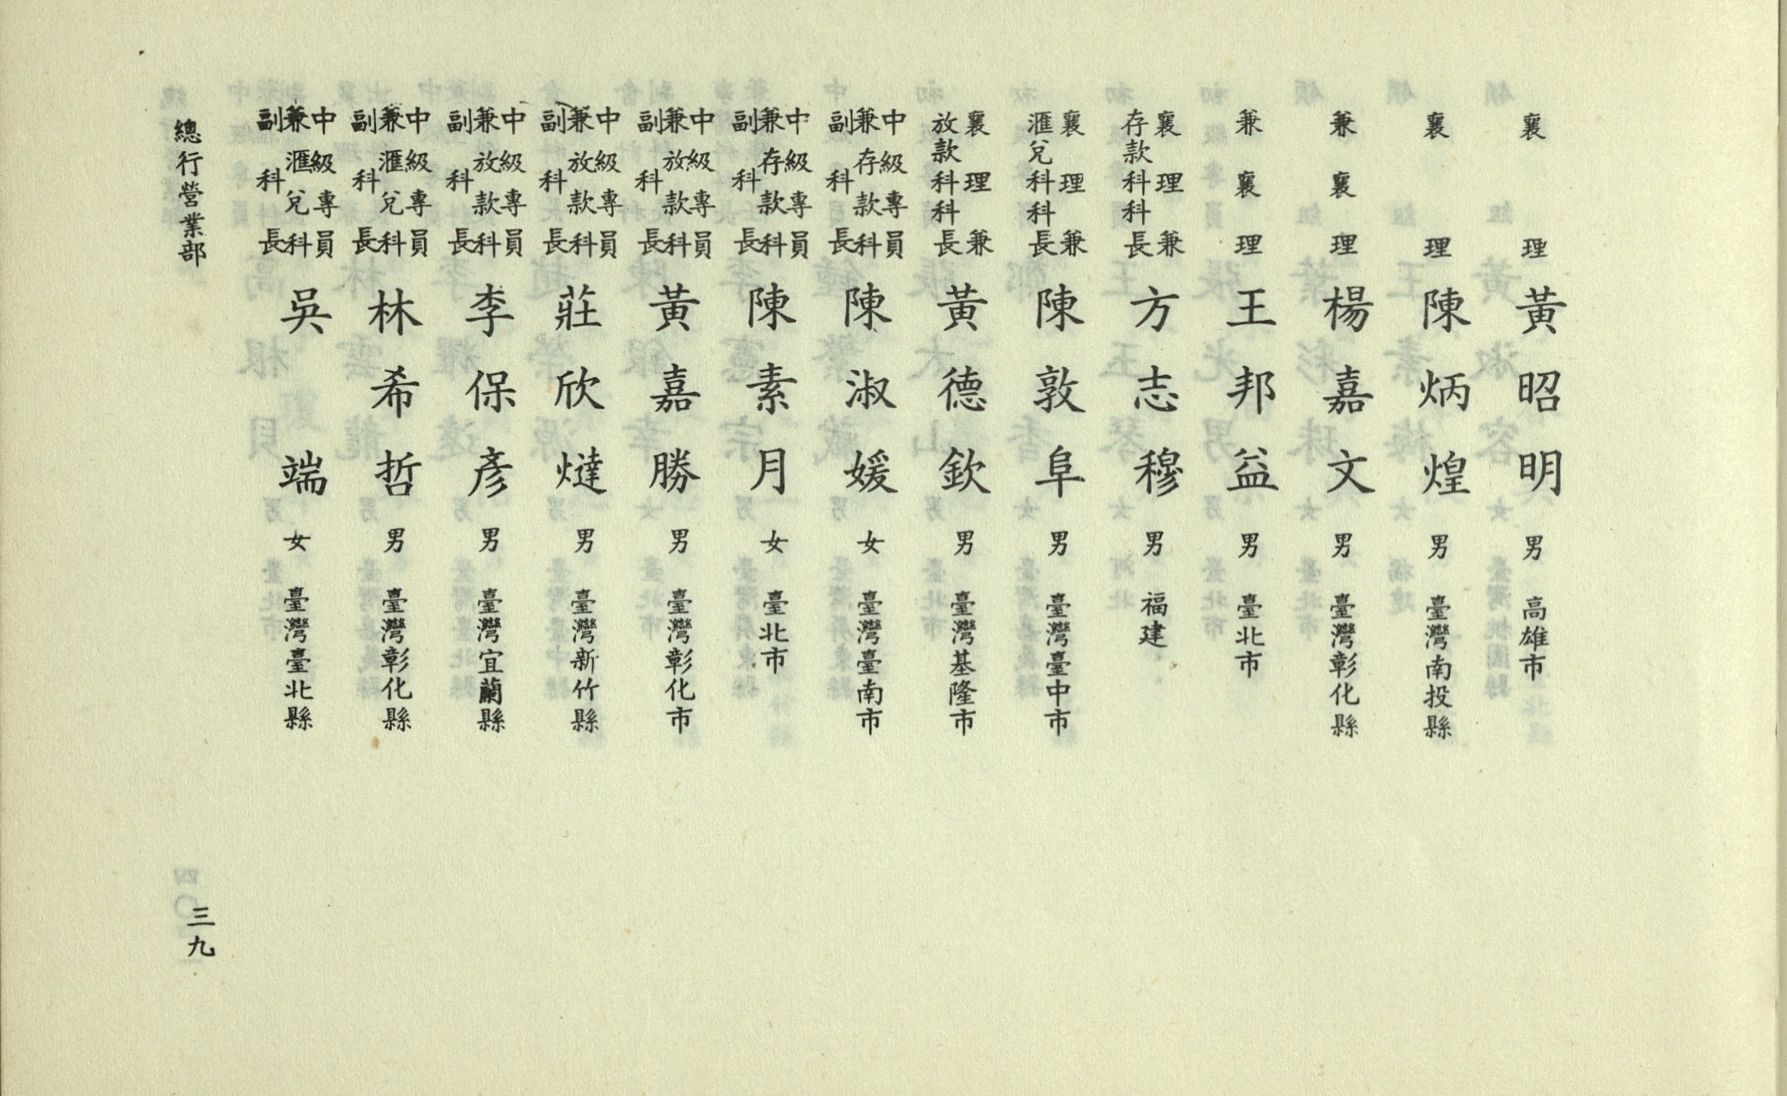 襄理 黃昭明 男 高雄市
襄理 陳炳煌 男 臺灣南投縣
兼襄理 楊嘉文 男 臺灣彰化縣
兼襄理 王邦益 男 臺北市
襄理兼存款科科長 方志穆 男 福建
襄理兼滙兌科科長 陳敦阜 男 臺灣臺中市
襄理兼放款科科長 黃德欽 男 臺灣基隆市
中級專員兼存款科副科長 陳淑媛 女 臺灣臺南市
中級專員兼存款科副科長 陳素月 女 臺北市
中級專員兼放款科副科長 黃嘉勝 男 臺灣彰化市
中級專員兼放款科副科長 莊欣燵 男 臺灣新竹縣
中級專員兼放款科副科長 李保彥 男 臺灣宜蘭縣
中級專員兼滙兌科副科長 林希哲 男 臺灣彰化縣
中級專員兼滙兌科副科長 吳端 女 臺灣臺北縣
總行營業部
三九